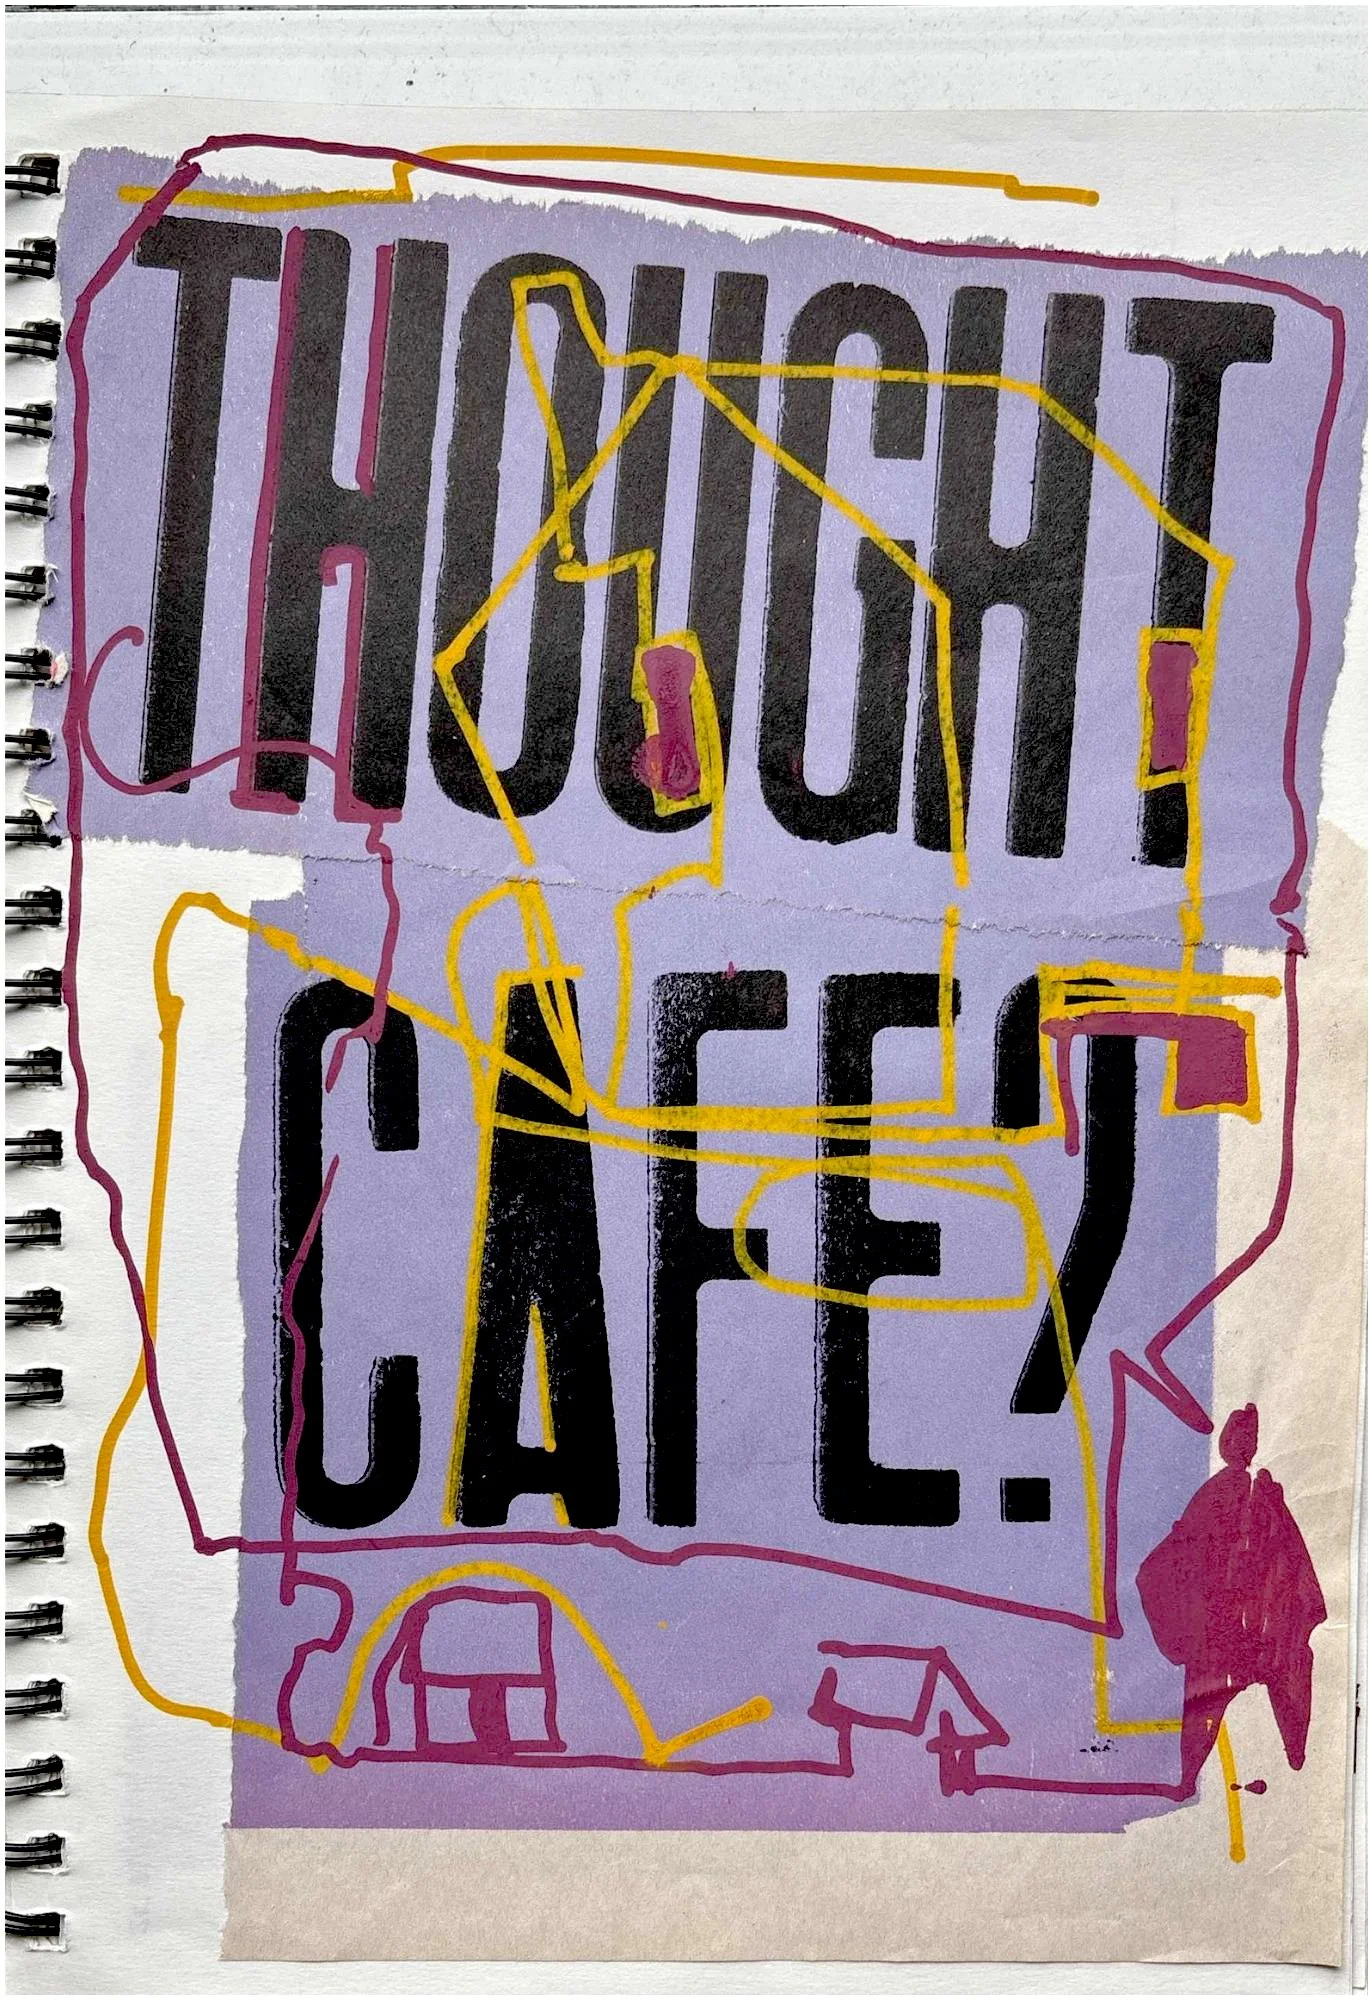 THOUGHT
CAFE?